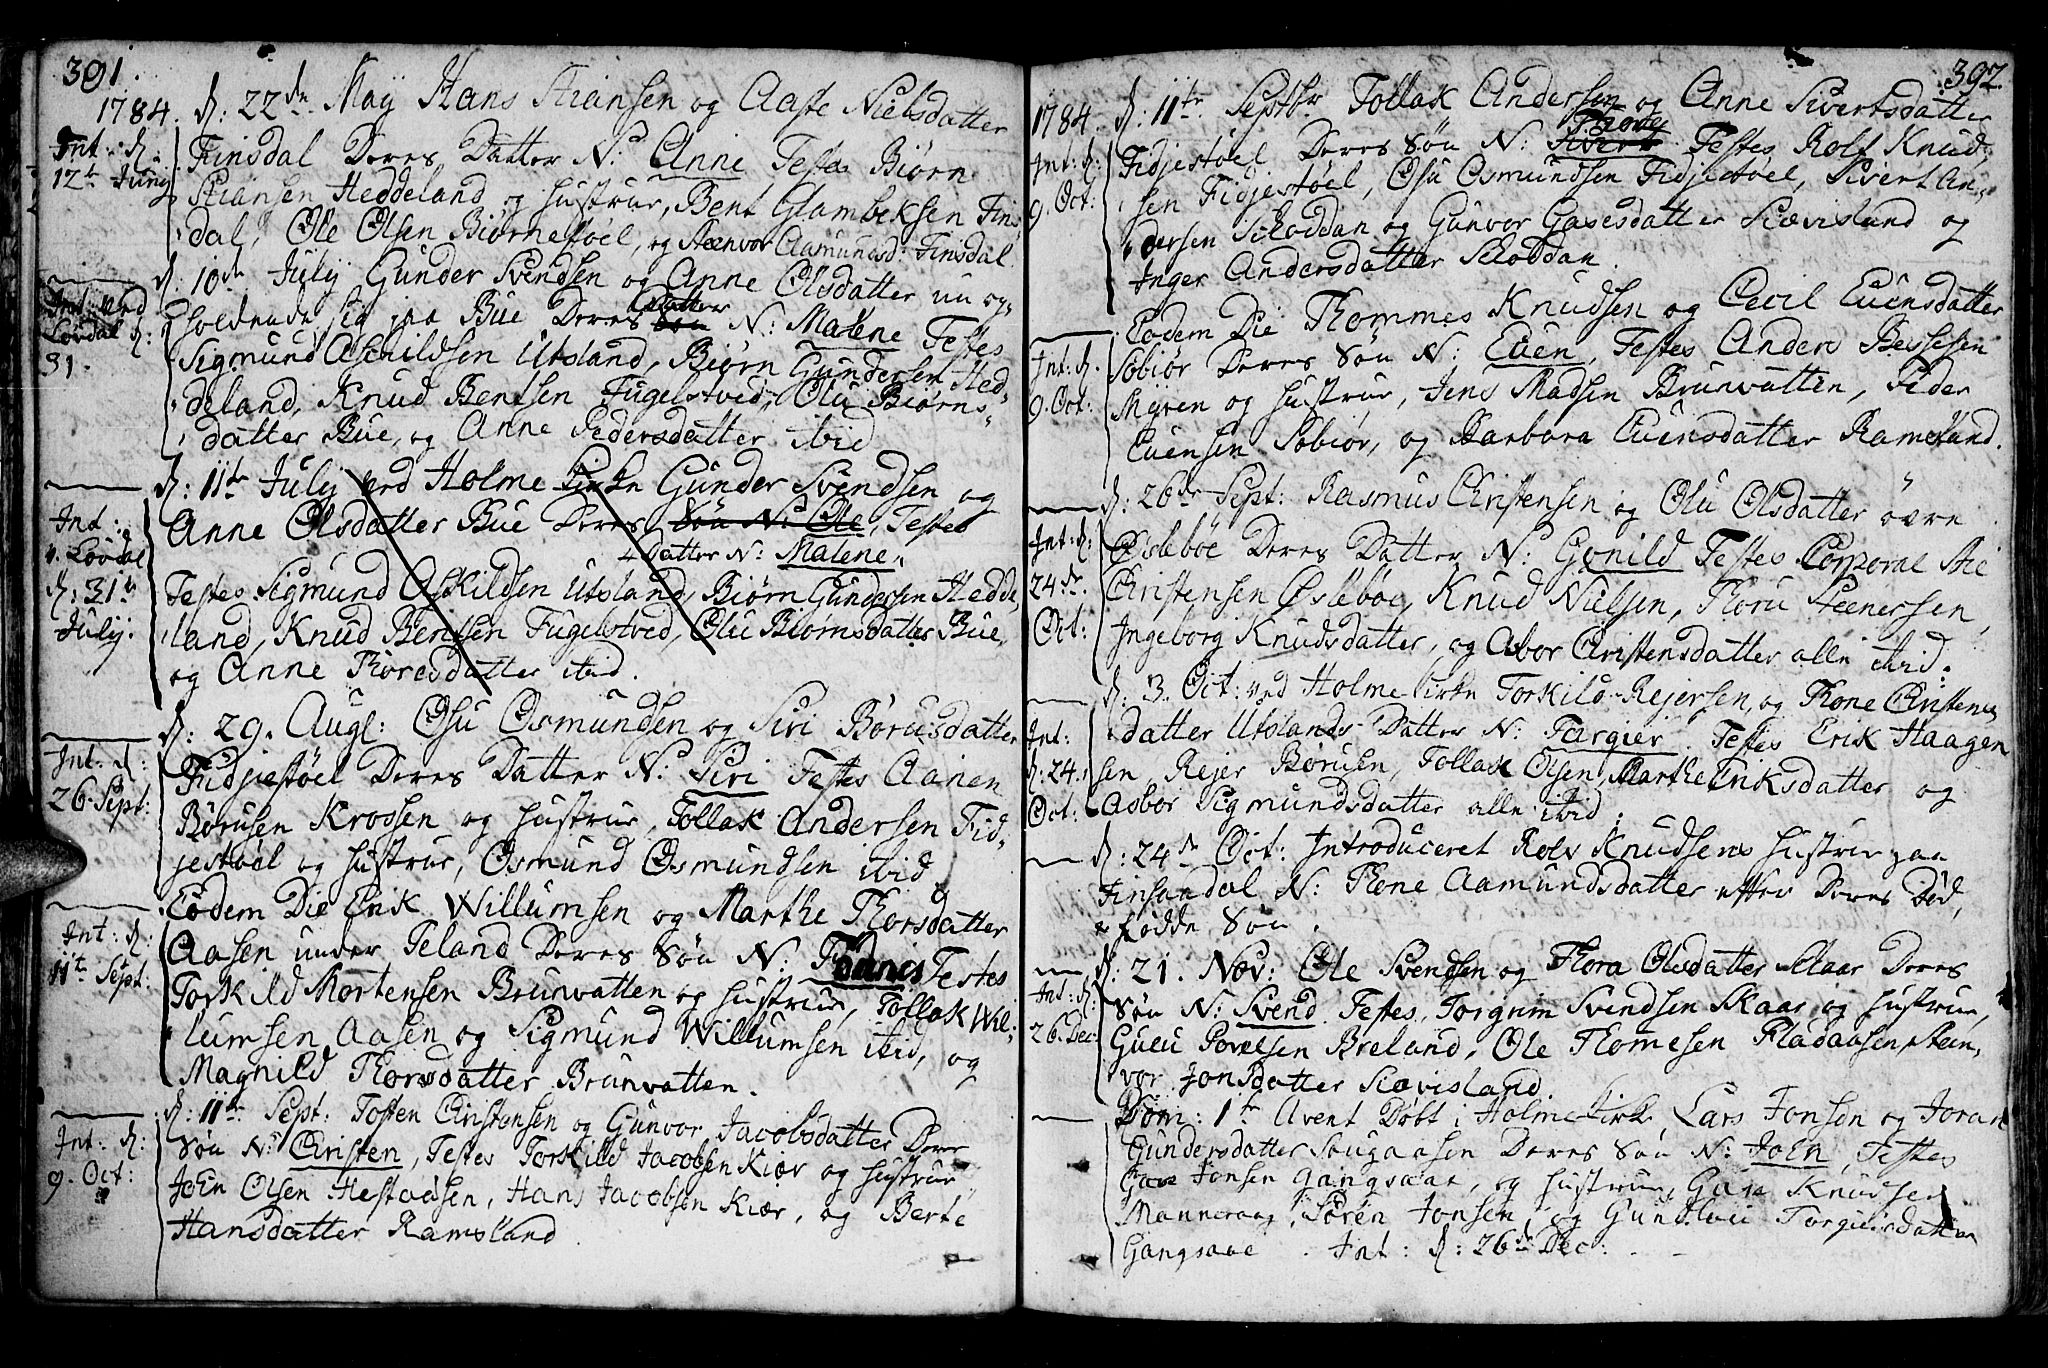 391.
1784. d: 22de Maÿ Hans Stiansen og Aaste Nielsdatter
Int: d: Finsdal Deres Datter N: Anne Testes Biørn
12te Junÿ Stiansen Heddeland og hustrue, Bent Glambeksen Fins,
dal, Ole Olsen Biørnestøel, og Steenvor Aamundsd: Finsdal.
d. 10de Julÿ Gunder Svendsen og Anne Olsdatter nu op,
Int: ved holdende sig paa Bue Deres Søn Datter N: Malene Testes
Løvdal d: Sigmund Aschildsen Utsland, Biørn Gundersen Hed,
31. deland, Knud Bentsen Fugelstved, Olu Biørns,
datter Bue, og Anne Pedersdatter ibid
d: 11te Julÿ ved Holme Kirke Gunder Svendsen og
Int: Anne Olsdatter Bue Deres Søn N: Ole, Testes
v. Løvdal Datter N: Malene,
d: 31te Testes Sigmund Askildsen Utsland, Biørn Gundersen Hedde,
Julÿ. land, Knud Bentsen Fugelstved, Olu Biørnsdatter Bue,
og Anne Thoresdatter ibid.
d: 29. Augl: Osu Osmundsen og Siri Børusdatter
Int: d: Fidjestøel Deres Datter N: Siri Testes Aanen
26. Sept: Børusen Krossen og hustrue, Tollak Andersen Fid,
jestøel og hustrue, Osmund Osmundsen ibid
Eodem Die Erik Willumsen og Marthe Thorsdatter
Int: d: Aasen under Teland Deres Søn N: Testes
11te Sept. Torkild Mortensen Brunvatten og hustrue, Tollak Wil,
lumsen Aasen og Sigmund Willumsen ibid, og
Magnild Thorsdatter Brunvatten.
d: 11te Sept: Tosten Christensen og Gunvor Jacobsdatter Deres
Int: d: Søn N: Christen, Testes Torkild Jacobsen Kiær og hustrue
9. Oct: Joen Olsen Hestaasen, Hans Jacobsen Kiær, og Berte
Hansdatter Ramsland
392.
1784. d: 11te Septbr Tollak Andersen og Anne Sivertsdatter
Int: d: Fidjestøel Deres Søn N: Sivert Testes Rolf Knud,
9. Oct: sen Fidjestøel, Osu Osmundsen Fidjestøel, Sivert An,
dersen Skoddan og Gunvor Gasesdatter Skievisland og
Inger Andersdatter Skoddan
Eodem Die Thommes Knudsen og Cecil Euensdatter
Int: d. Søbiør Deres Søn N: Euen, Testes Anders Bessesen
9. Oct: Mÿren og hustrue, Jens Madsen Brunvatten, Peder
Euensen Søbiør, og Barbara Euensdatter Ramsland.
d: 26de Sept: Rasmus Christensen og Olu Olsdatter øvre
Int: d: Øslebøe Deres Datter N: Gonild Testes Corporal
24de Christensen Øslebøe, Knud Nielsen, Thoru Steenersen,
Oct: Ingeborg Knudsdatter, og Asbor Christensdatter alle ibid.
d. 3. Oct: ved Holme Kirke Torkild Rejersen, og Thone Christens
Int: datter Utslands Datter N: Targier. Testes Erik Haagen
d: 24. sen, Rejer Børusen, Tollak Olsen, Marthe Eriksdatter og
Oct: Asbor Sigmundsdatter alle ibid.
d: 24de Oct: Introduceret Rolv Knudsens hustrue paa
Finsandal N: Thone Aamundsdatter efter Deres Død,
fødde Søn.
d: 21. Nov: Ole Svendsen og Thora Olsdatter Skaar Deres
Int: d: Søn N: Svend Testes, Torgrim Svendsen Skaar og hustrue,
26. Dec: Gueu Povelsen Breland, Ole Thomesen Fladaasen, Steen,
vor Jonsdatter Skievisland
Dom: 1te Avent Døbt i Holme Kirke Lars Jonsen og Joran
Gundersdatter Sougaasen Deres Søn N: Joen, Testes
Gare Jonsen Gangsaae, og hustrue, Gare Knudsen
Manneraag, Søren Jonsen, og Gundloü Torgiersdatter
Gangsaae. Int: d: 26de Dec: